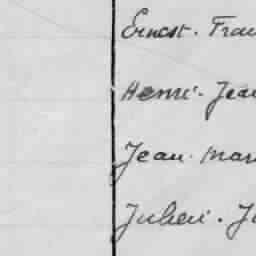 Ernest. Fran
Henri. Jean
Jean. Mari
Julien. J